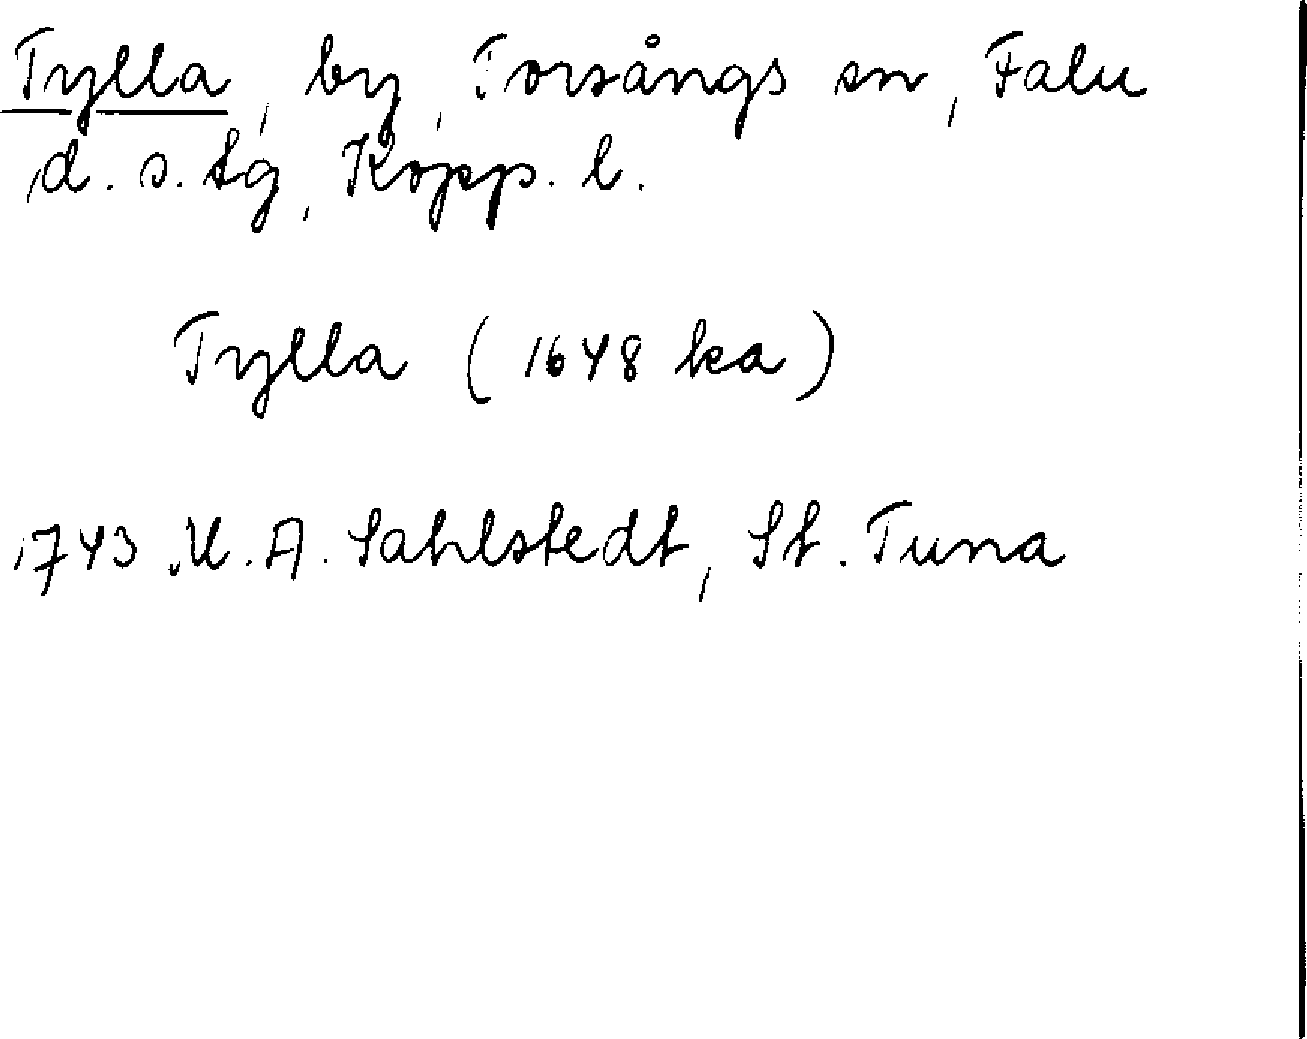 Tylla, by, Torsångs sn, Falu
d. s. tg, Kopp. l.
Tylla (1648 ka)
1743 A. Sahlstedt, St. Tuna